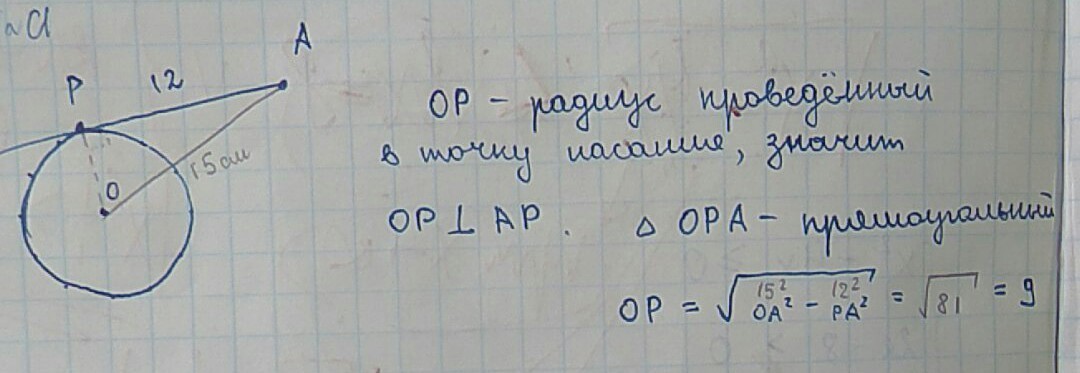 A
P
12
15 см
O
OP – радиус проведённый
в точку касание, значит
OP ⊥ AP. △ OPA – прямоугольный
15² 12²
OP = √(OA² – PA²) = √81 = 9